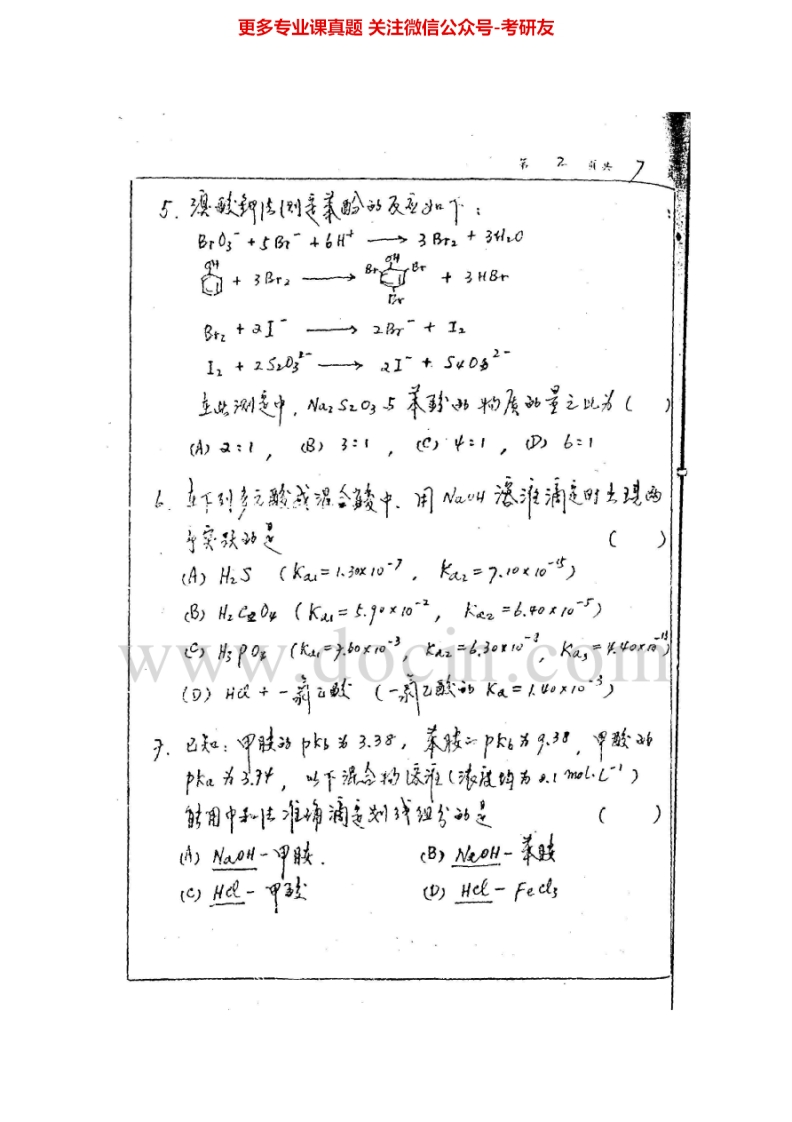 更多专业课真题 关注微信公众号-考研友
第 2 页共 7
5. 溴酸钾法测定苯酚的反应如下：
BrO3⁻ + 5Br⁻ + 6H⁺ → 3Br2 + 3H2O
OH + 3Br2 → OH Br Br Br + 3HBr
Br2 + 2I⁻ → 2Br⁻ + I2
I2 + 2S2O3²⁻ → 2I⁻ + S4O6²⁻
在此测定中，Na2S2O3与苯酚的物质的量之比为（ ）
(A) 2:1， (B) 3:1， (C) 4:1， (D) 6:1
6. 在下列多元酸或混合酸中，用NaOH溶液滴定时出现两
个突跃的是 （ ）
(A) H2S （Ka1=1.30×10⁻⁷， Ka2=7.10×10⁻¹⁵）
(B) H2C2O4 （Ka1=5.90×10⁻²， Ka2=6.40×10⁻⁵）
(C) H3PO4 （Ka1=7.60×10⁻³， Ka2=6.30×10⁻⁸， Ka3=4.40×10⁻¹³）
(D) HCl + 一氯乙酸 （一氯乙酸的Ka=1.40×10⁻³）
www.docin.com
7. 已知：甲胺的pKb为3.38，苯胺的pKb为9.38，甲酸的
pKa为3.74，以下混合物溶液（浓度均为0.1 mol·L⁻¹）
能用中和法准确滴定划线组分的是 （ ）
(A) NaOH-甲胺. (B) NaOH-苯胺
(C) HCl-甲酸 (D) HCl-FeCl3